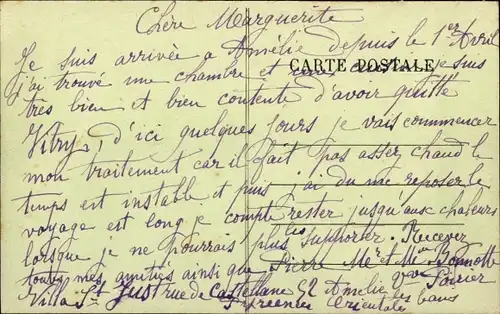 Chère Marguerite
Je suis arrivée a Amélie depuis le 1er Avril
j'ai trouvé une chambre et une je suis
CARTE POSTALE
très bien et bien contente d'avoir quitté
Vitry, d'ici quelques jours je vais commencer
mon traitement car il fait pas assez chaud le
temps est instable et puis j'ai du me reposer le
voyage est long je compte rester jusqu'aux chaleurs
lorsque je ne pourrais plus les supporter. Recevez
toutes mes amitiés ainsi que Pierre Mr et Me Bonnotte
Villa St Just rue de Castellane 52 Amélie les bains
Pyreenées Orientales
Poirier